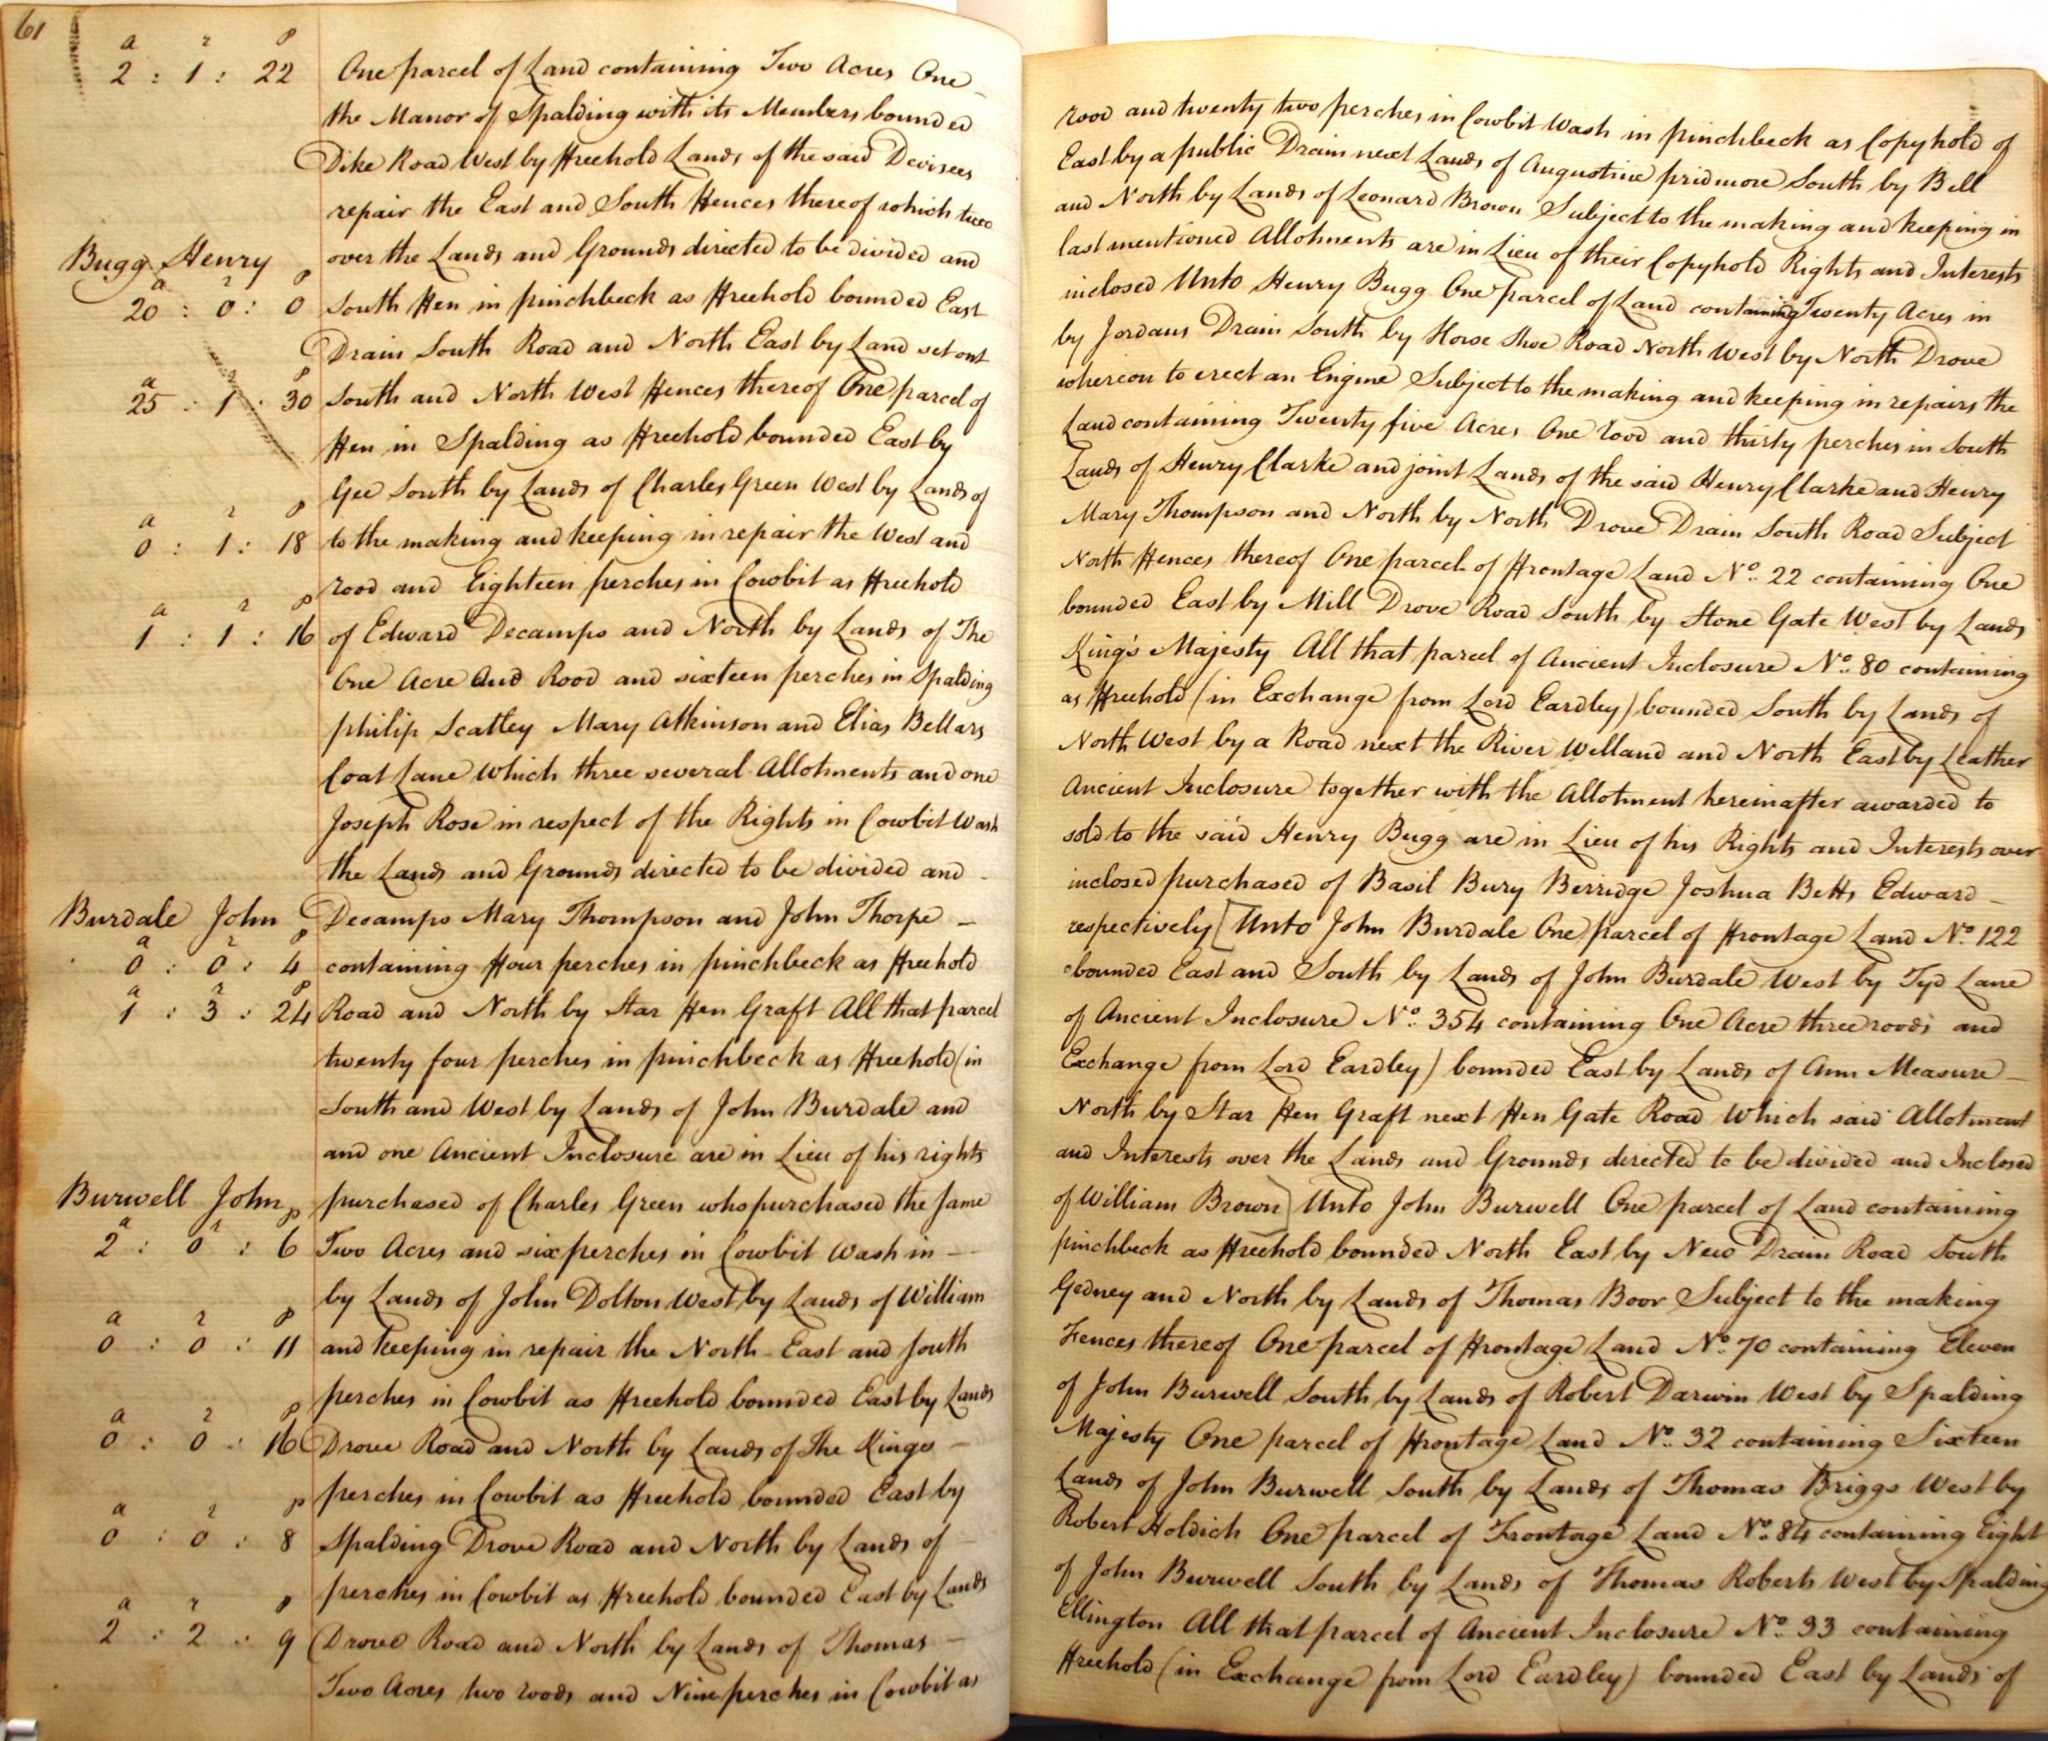 61
a r p
2 : 1 : 22
One parcel of Land containing Two Acres One rood and twenty two perches in Cowbit Wash in pinchbeck as Copyhold of
the Manor of Spalding with its Members bounded East by a public Drain next Lands of Augustine pridmore South by Bell
Dike Road West by Freehold Lands of the said Devisees and North by Lands of Leonard Brown Subject to the making and keeping in
repair the East and South Fences thereof which two last mentioned Allotments are in Lieu of their Copyhold Rights and Interests
Bugg Henry
over the Lands and Grounds directed to be divided and inclosed Unto Henry Bugg One parcel of Land containing Twenty Acres in
a r p
20 : 0 : 0
South Fen in pinchbeck as Freehold bounded East by Jordans Drain South by Horse Shoe Road North West by North Drove
Drain South Road and North East by Land set out whereon to erect an Engine Subject to the making and keeping in repairs the
a r p
25 : 1 : 30
South and North West Fences thereof One parcel of Land containing Twenty five Acres One rood and thirty perches in South
Fen in Spalding as Freehold bounded East by Lands of Henry Clarke and joint Lands of the said Henry Clarke and Henry
Gee South by Lands of Charles Green West by Lands of Mary Thompson and North by North Drove Drain South Road Subject
a r p
0 : 1 : 18
to the making and keeping in repair the West and North Fences thereof One parcel of Frontage Land No. 22 containing One
rood and Eighteen perches in Cowbit as Freehold bounded East by Mill Drove Road South by Stone Gate West by Lands
a r p
1 : 1 : 16
of Edward Decamps and North by Lands of The King's Majesty All that parcel of Ancient Inclosure No. 80 containing
One Acre One Rood and sixteen perches in Spalding as Freehold (in Exchange from Lord Eardley) bounded South by Lands of
philip Scatley Mary Atkinson and Elias Bellars North West by a Road next the River Welland and North East by Leather
Coat Lane which three several Allotments and one Ancient Inclosure together with the Allotment hereinafter awarded to
Joseph Rose in respect of the Rights in Cowbit Wash sold to the said Henry Bugg are in Lieu of his Rights and Interests over
the Lands and Grounds directed to be divided and inclosed purchased of Basil Bury Berridge Joshua Betts Edward
Burdale John
Decamps Mary Thompson and John Thorpe respectively [Unto John Burdale One parcel of Frontage Land No. 122
a r p
0 : 0 : 4
containing Four perches in pinchbeck as Freehold bounded East and South by Lands of John Burdale West by Tyd Lane
a r p
1 : 3 : 24
Road and North by Star Fen Graft All that parcel of Ancient Inclosure No. 354 containing One Acre three roods and
twenty four perches in pinchbeck as Freehold (in Exchange from Lord Eardley) bounded East by Lands of Ann Measure
South and West by Lands of John Burdale and North by Star Fen Graft next Fen Gate Road Which said Allotment
and one Ancient Inclosure are in Lieu of his rights and Interests over the Lands and Grounds directed to be divided and Inclosed
Burwell John
purchased of Charles Green who purchased the same of William Brown] Unto John Burwell One parcel of Land containing
a r p
2 : 0 : 6
Two Acres and six perches in Cowbit Wash in pinchbeck as Freehold bounded North East by New Drain Road South
by Lands of John Dolton West by Lands of William Gedney and North by Lands of Thomas Boor Subject to the making
a r p
0 : 0 : 11
and keeping in repair the North East and South Fences thereof One parcel of Frontage Land No. 70 containing Eleven
perches in Cowbit as Freehold bounded East by Lands of John Burwell South by Lands of Robert Darwin West by Spalding
a r p
0 : 0 : 16
Drove Road and North by Lands of The Kings Majesty One parcel of Frontage Land No. 32 containing Sixteen
perches in Cowbit as Freehold bounded East by Lands of John Burwell South by Lands of Thomas Briggs West by
a r p
0 : 0 : 8
Spalding Drove Road and North by Lands of Robert Holdich One parcel of Frontage Land No. 84 containing Eight
perches in Cowbit as Freehold bounded East by Lands of John Burwell South by Lands of Thomas Roberts West by Spalding
a r p
2 : 2 : 9
Drove Road and North by Lands of Thomas Ellington All that parcel of Ancient Inclosure No. 33 containing
Two Acres two roods and Nine perches in Cowbit as Freehold (in Exchange from Lord Eardley) bounded East by Lands of